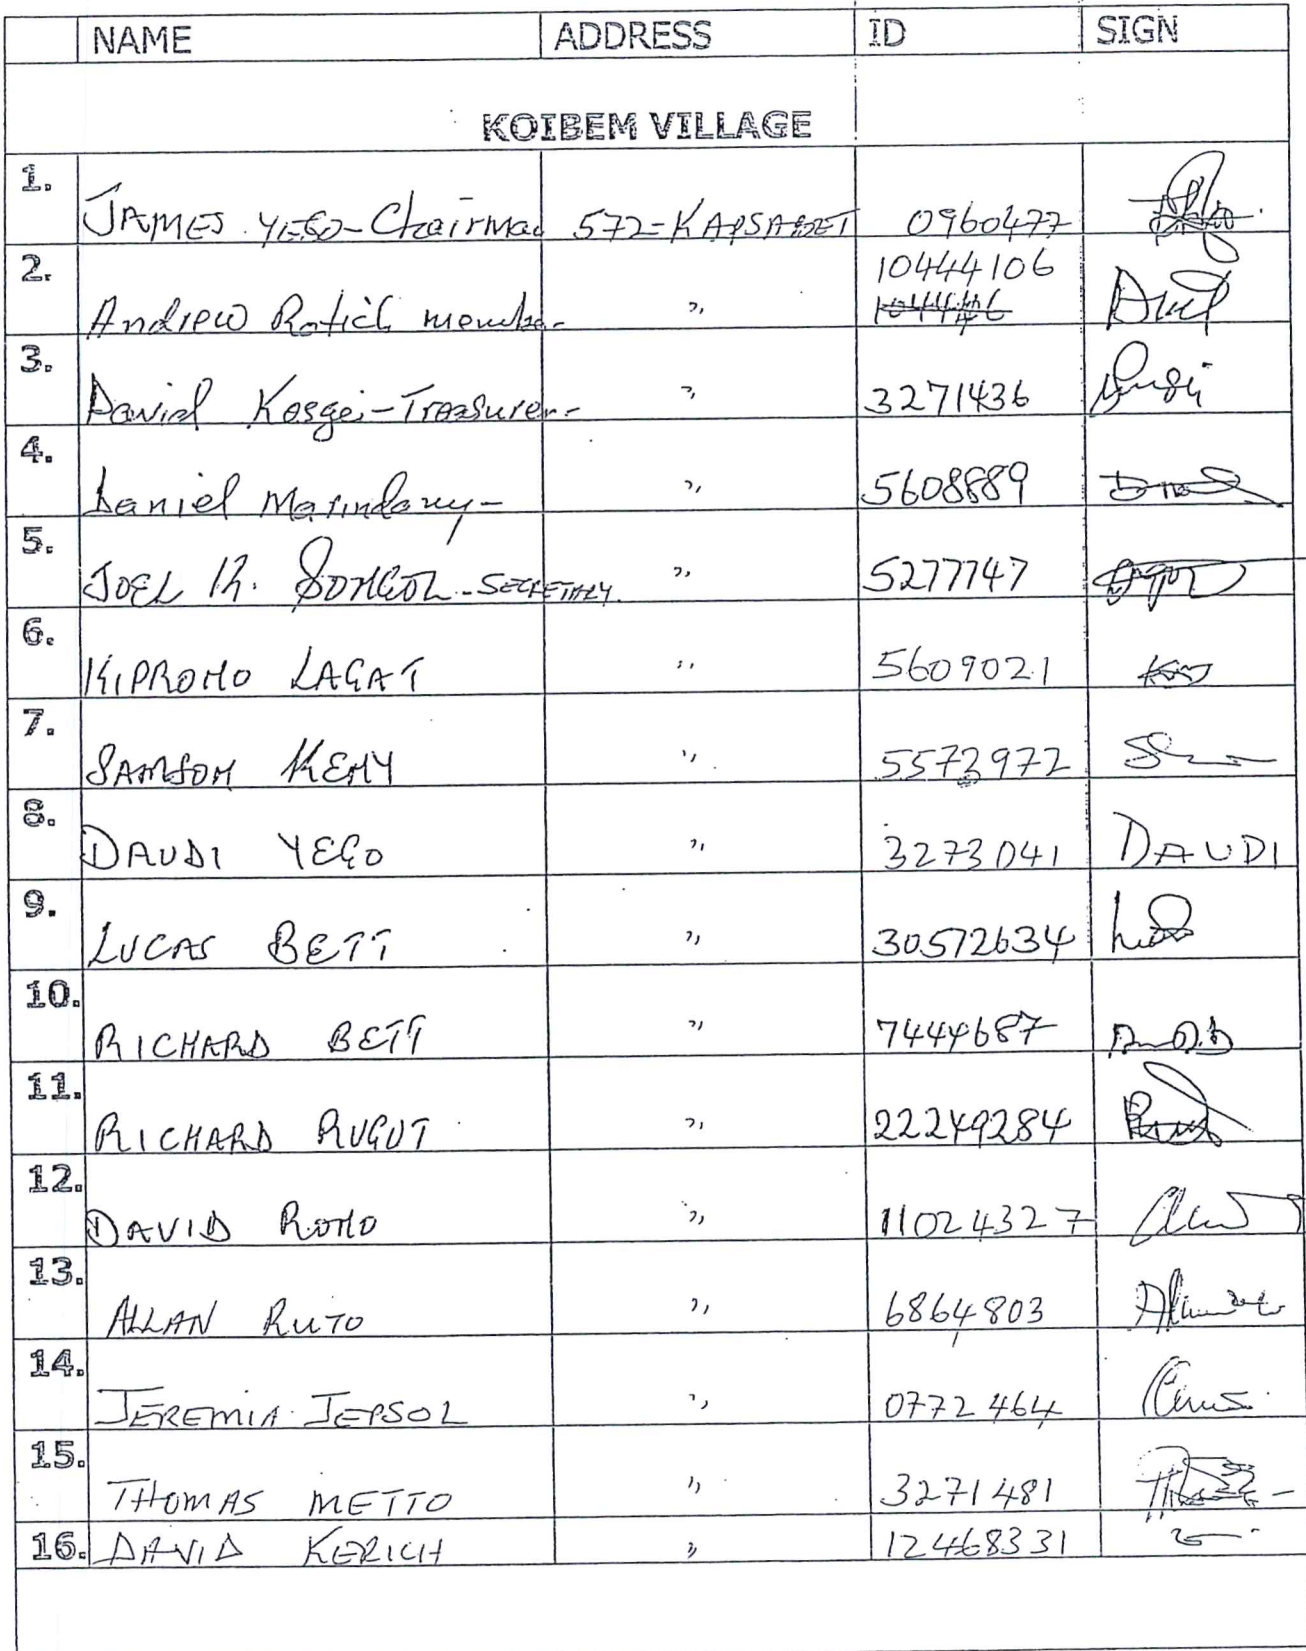 NAME ADDRESS ID SIGN
KOIBEM VILLAGE
1. JAMES YEGO-Chairman 572-KAPSABET 0960477
2. Andrew Rotich member 〃 10444106
3. David Kosgei-Treasurer- 〃 3271436
4. Daniel Marindany- 〃 5608889
5. JOEL K. SONGOL-SECRETARY. 〃 5277747
6. KIPRONO LAGAT 〃 5609021
7. SAMSON KENY 〃 5573972
8. DAUDI YEGO 〃 3273041 DAUDI
9. LUCAS BETT 〃 30572634
10. RICHARD BETT 〃 7444687
11. RICHARD RUGUT 〃 22249284
12. DAVID RONO 〃 11024327
13. ALLAN RUTO 〃 6864803
14. JEREMIA JEPSOL 〃 0772464
15. THOMAS METTO 〃 3271481
16. DAVID KERICH 〃 12468331